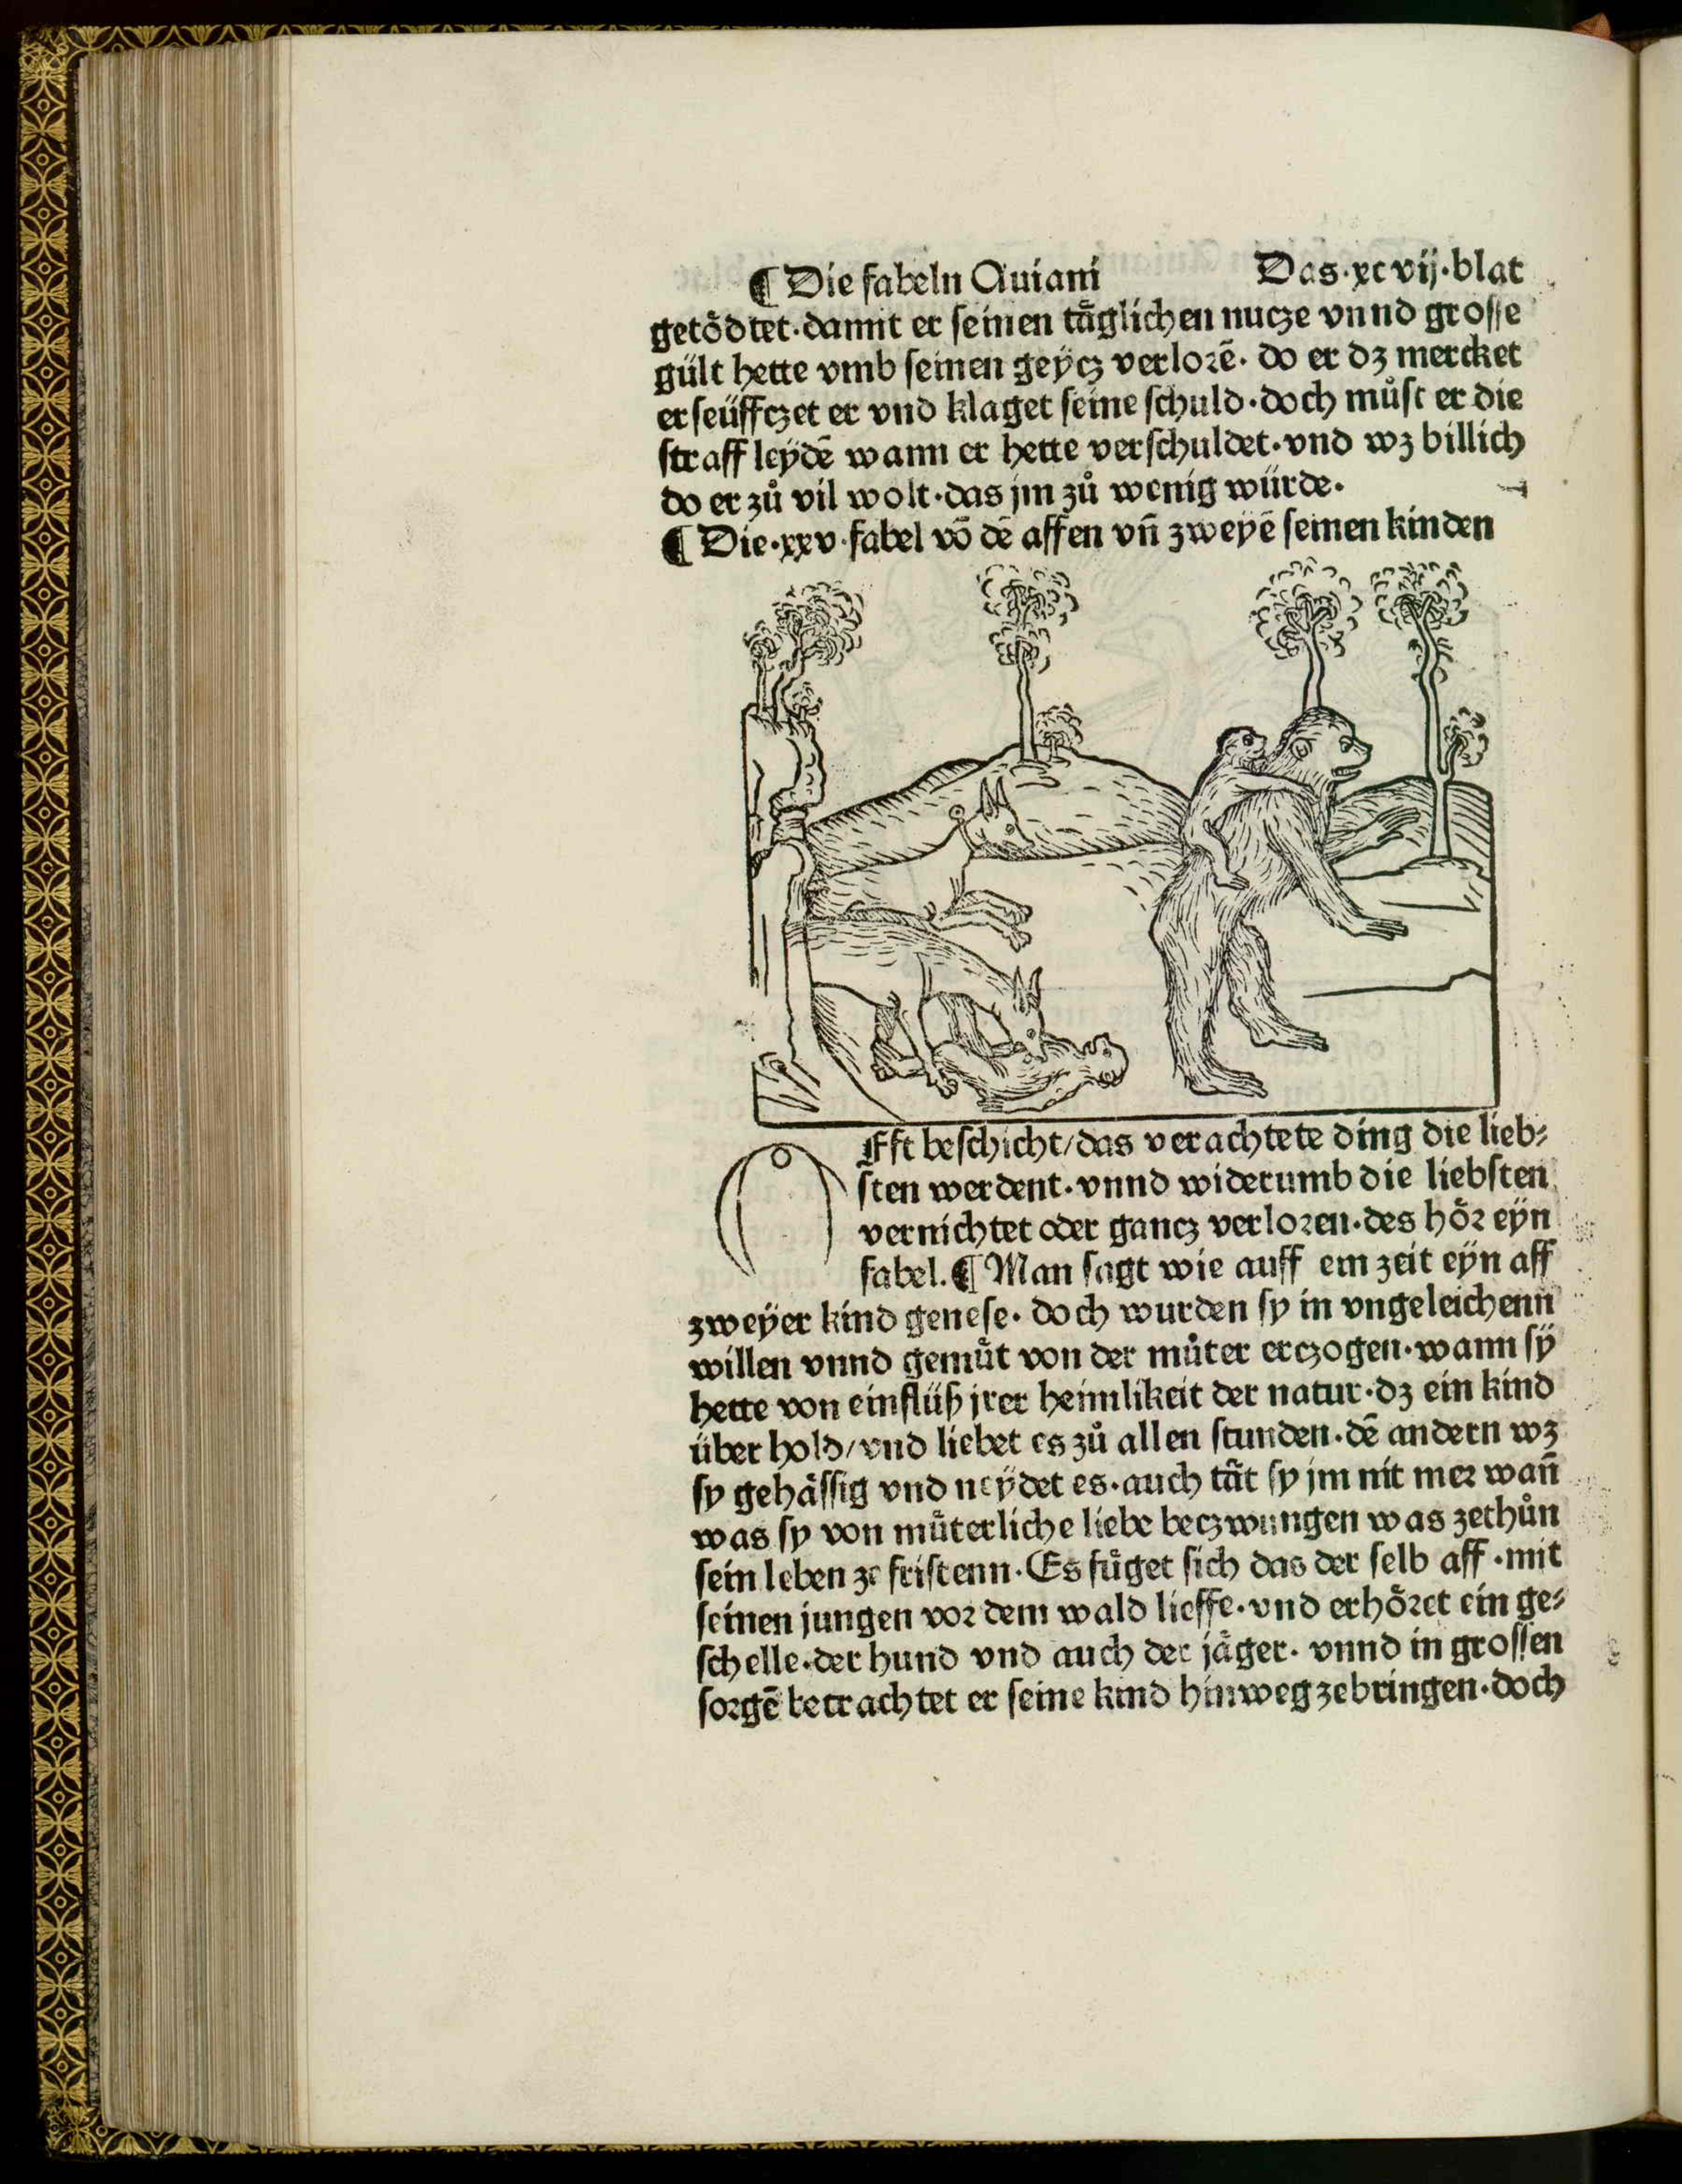 ¶ Die fabeln Auiani Das·xcvij·blat
getoͤdtet·damit er seinen taͤglichen nucze vnnd grosse
gült hette vmb seinen geÿcz verlorē· do er dz mercket
erseüffczet er vnd klaget seine schuld·doch muͦst er die
straff leÿdē wann er hette verschuldet·vnd wz billich
do er zuͦ vil wolt·das jm zuͦ wenig würde·
¶ Die·xxv·fabel vō dē affen vn̄ zweyē seinen kinden
OFft beschicht/das verachtete ding die lieb⸗
sten werdent·vnnd widerumb die liebsten
vernichtet oder gancz verloren·des hoͤr eÿn
fabel.¶ Man sagt wie auff ein zeit eÿn aff
zweÿer kind genese· doch wurden sy in vngeleichenn
willen vnnd gemuͤt von der muͦter erczogen·wann sÿ
hette von einflüß jrer heimlikeit der natur·dz ein kind
über hold/vnd liebet es zuͦ allen stunden·dē andern wz
sy gehaͤssig vnd neÿdet es·auch taͤt sy jm nit mer wan̄
was sy von muͤterliche liebe beczwungen was zethuͦn
sein leben ze fristenn·Es fuͤget sich das der selb aff·mit
seinen jungen vor dem wald lieffe·vnd erhoͤret ein ge⸗
schelle·der hund vnd auch der jaͤger· vnnd in grossen
sorgē betrachtet er seine kind hinweg zebringen·doch